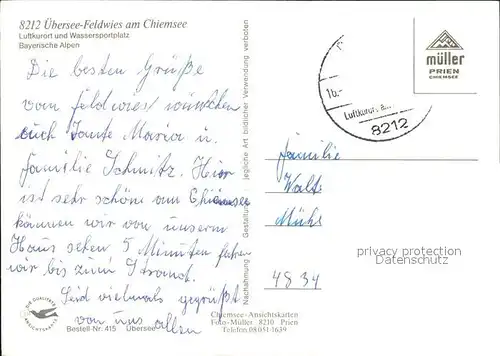 8212 Übersee-Feldwies am Chiemsee
Luftkurort und Wassersportplatz
Bayerische Alpen
Die besten Grüße
vom Feldwies wünschen
euch Tante Maria u.
Familie Schmitz. Hier
ist sehr schön am Chiemsee
können wir von unserm
Haus sehen 5 Minuten fahren
wir bis zum Strand.
Seid vielmals gegrüßt
von uns allen
DIE QUALITÄTS
ANSICHTSKARTE
Bestell-Nr. 415 Übersee
Nachahmung
Gestaltung
jegliche Art bildlicher Verwendung verboten
Chiemsee-Ansichtskarten
Foto-Müller 8210 Prien
Telefon 08051-1639
1b.-
Luftkurort
8212
müller
PRIEN
CHIEMSEE
Familie
Walt
Mühl
4834
privacy protection